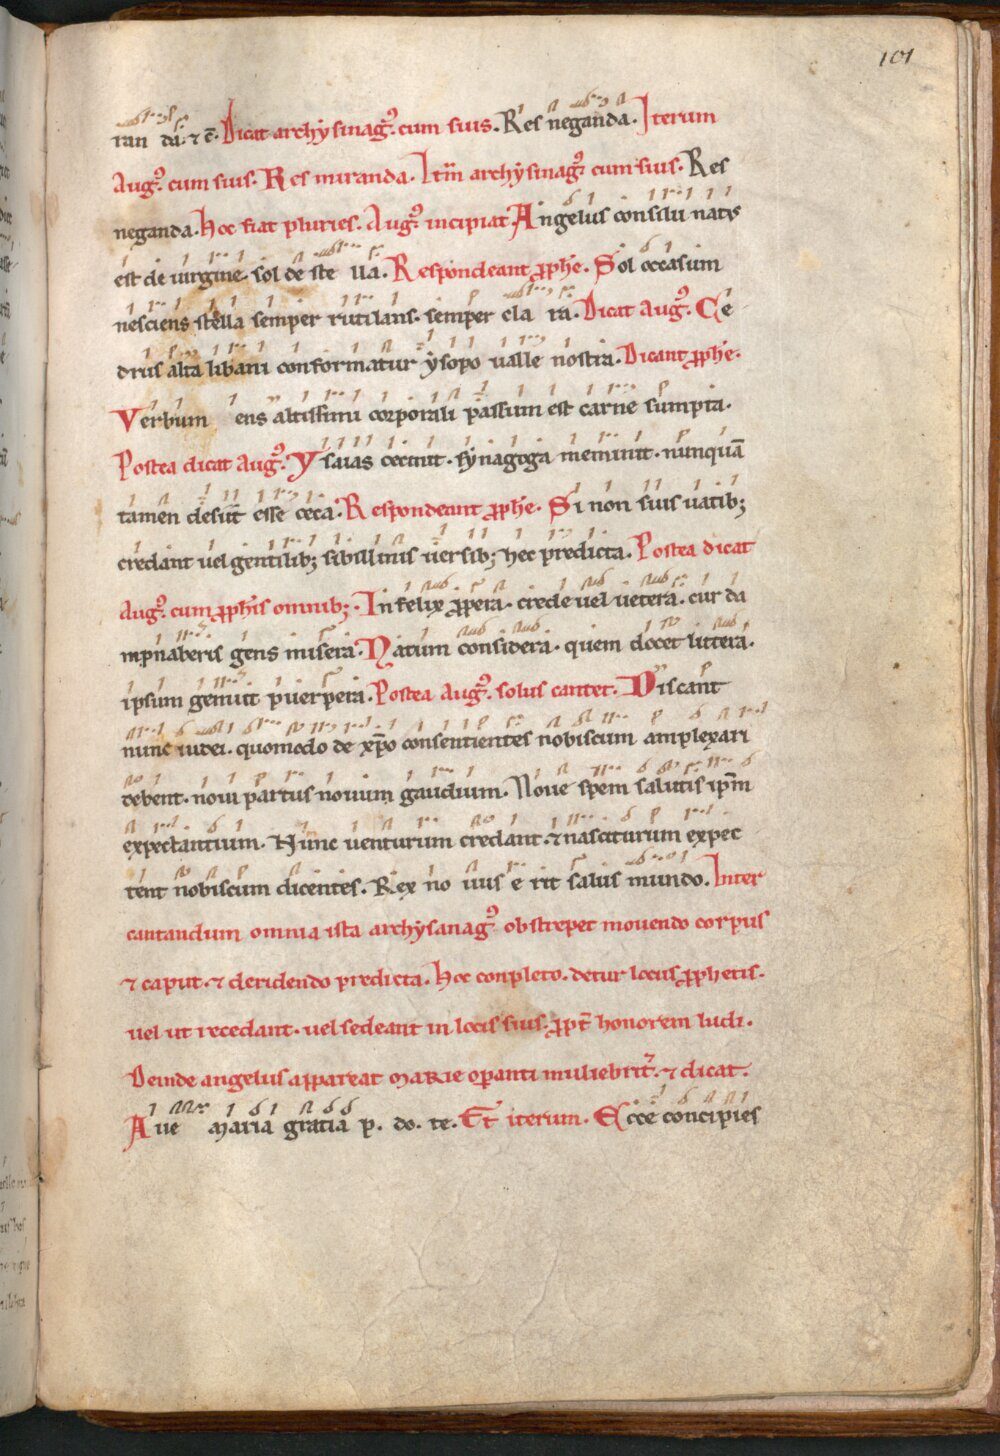 101
ran da. ⁊ c̄. Dicat archysinag᷒. cum suis. Res neganda. Iterum
Aug᷒. cum suis. Res miranda. Itm̄ archysinag᷒ cum suis. Res
neganda. Hoc fiat pluries. Aug᷒ incipiat. Angelus consilii natus
est de uirgine. sol de ste lla. Respondeant ꝓphe. Sol occasum
nesciens stella semper rutilans. semper cla ra. Dicat Aug᷒. Ce
drus alta libani conformatur ysopo ualle nostra. Dicant ꝓphe.
Verbum ens altissimi corporali passum est carne sumpta.
Postea dicat Aug᷒. Ysaias cecinit. synagoga meminit. nunquā
tamen desiit esse ceca. Respondeant ꝓphe. Si non suis uatib;
credant uel gentilib; sibillinis uersib; hec predicta. Postea dicat
Aug᷒. cum ꝓphis omnib;. Infelix ꝓpera. crede uel uetera. cur da
mpnaberis gens misera. Natum considera. quem docet littera.
ipsum genuit puerpera. Postea Aug᷒. solus cantet. Discant
nunc iudei. quomodo de xp̄o consentientes nobiscum amplexari
debent. noui partus nouum gaudium. Noue spem salutis ipm̄
expectantium. Nunc uenturum credant. ⁊ nasciturum expec
tent nobiscum dicentes. Rex no uus e rit salus mundo. Inter
cantandum omnia ista archysanag᷒ obstrepet mouendo corpus
⁊ caput. ⁊ deridendo predicta. Hoc conpleto. detur locus ꝓphetis.
uel ut recedant. uel sedeant in locis suis. ꝓpt̄ honorem ludi.
Deinde angelus appareat MARIE oꝑanti muliebrit᷑. ⁊ dicat.
Aue maria gratia p. do. te. Et iterum. Ecce concipies